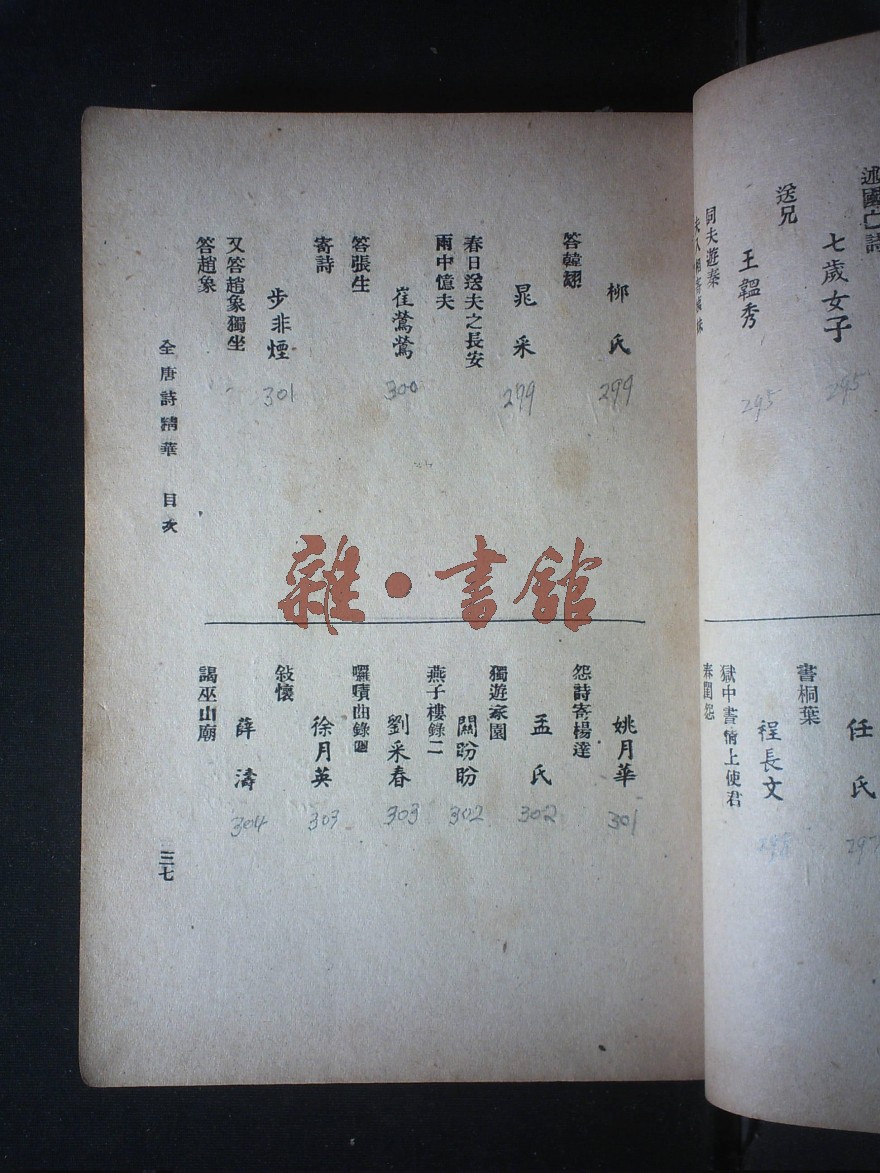 述國亡詩
七歲女子
295
送兄
王韞秀
295
同夫遊秦
書桐葉
任氏
297
獄中書情上使君
程長文
298
春閨怨
柳氏
299
答韓翃
晁采
299
春日送夫之長安
雨中憶夫
崔鶯鶯
300
答張生
寄詩
步非煙
301
又答趙象獨坐
答趙象
姚月華
301
怨詩寄楊達
孟氏
302
獨遊家園
關盼盼
302
燕子樓錄二
劉采春
303
囉嗊曲錄四
徐月英
303
敍懷
薛濤
304
謁巫山廟
全唐詩精華 目次
三七
雜·書館